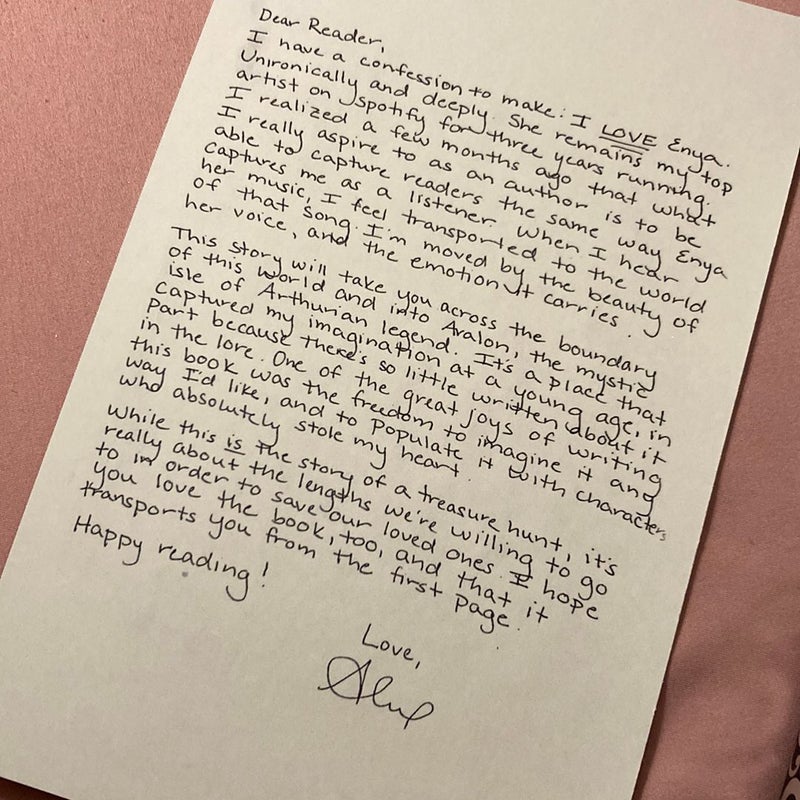 Dear Reader,
I have a confession to make: I LOVE Enya.
Unironically and deeply. She remains my top
artist on spotify for three years running.
I realized a few months ago that what
I really aspire to as an author is to be
able to capture readers the same way Enya
captures me as a listener. When I hear
her music, I feel transported to the world
of that song. I'm moved by the beauty of
her voice, and the emotion it carries.
This story will take you across the boundary
of this world and into Avalon, the mystic
isle of Arthurian legend. It's a place that
captured my imagination at a young age, in
part because there's so little written about it
in the lore. One of the great joys of writing
this book was the freedom to imagine it any
way I'd like, and to populate it with characters
who absolutely stole my heart.
While this is the story of a treasure hunt, it's
really about the lengths we're willing to go
to in order to save our loved ones. I hope
you love the book, too, and that it
transports you from the first page.
Happy reading!
Love,